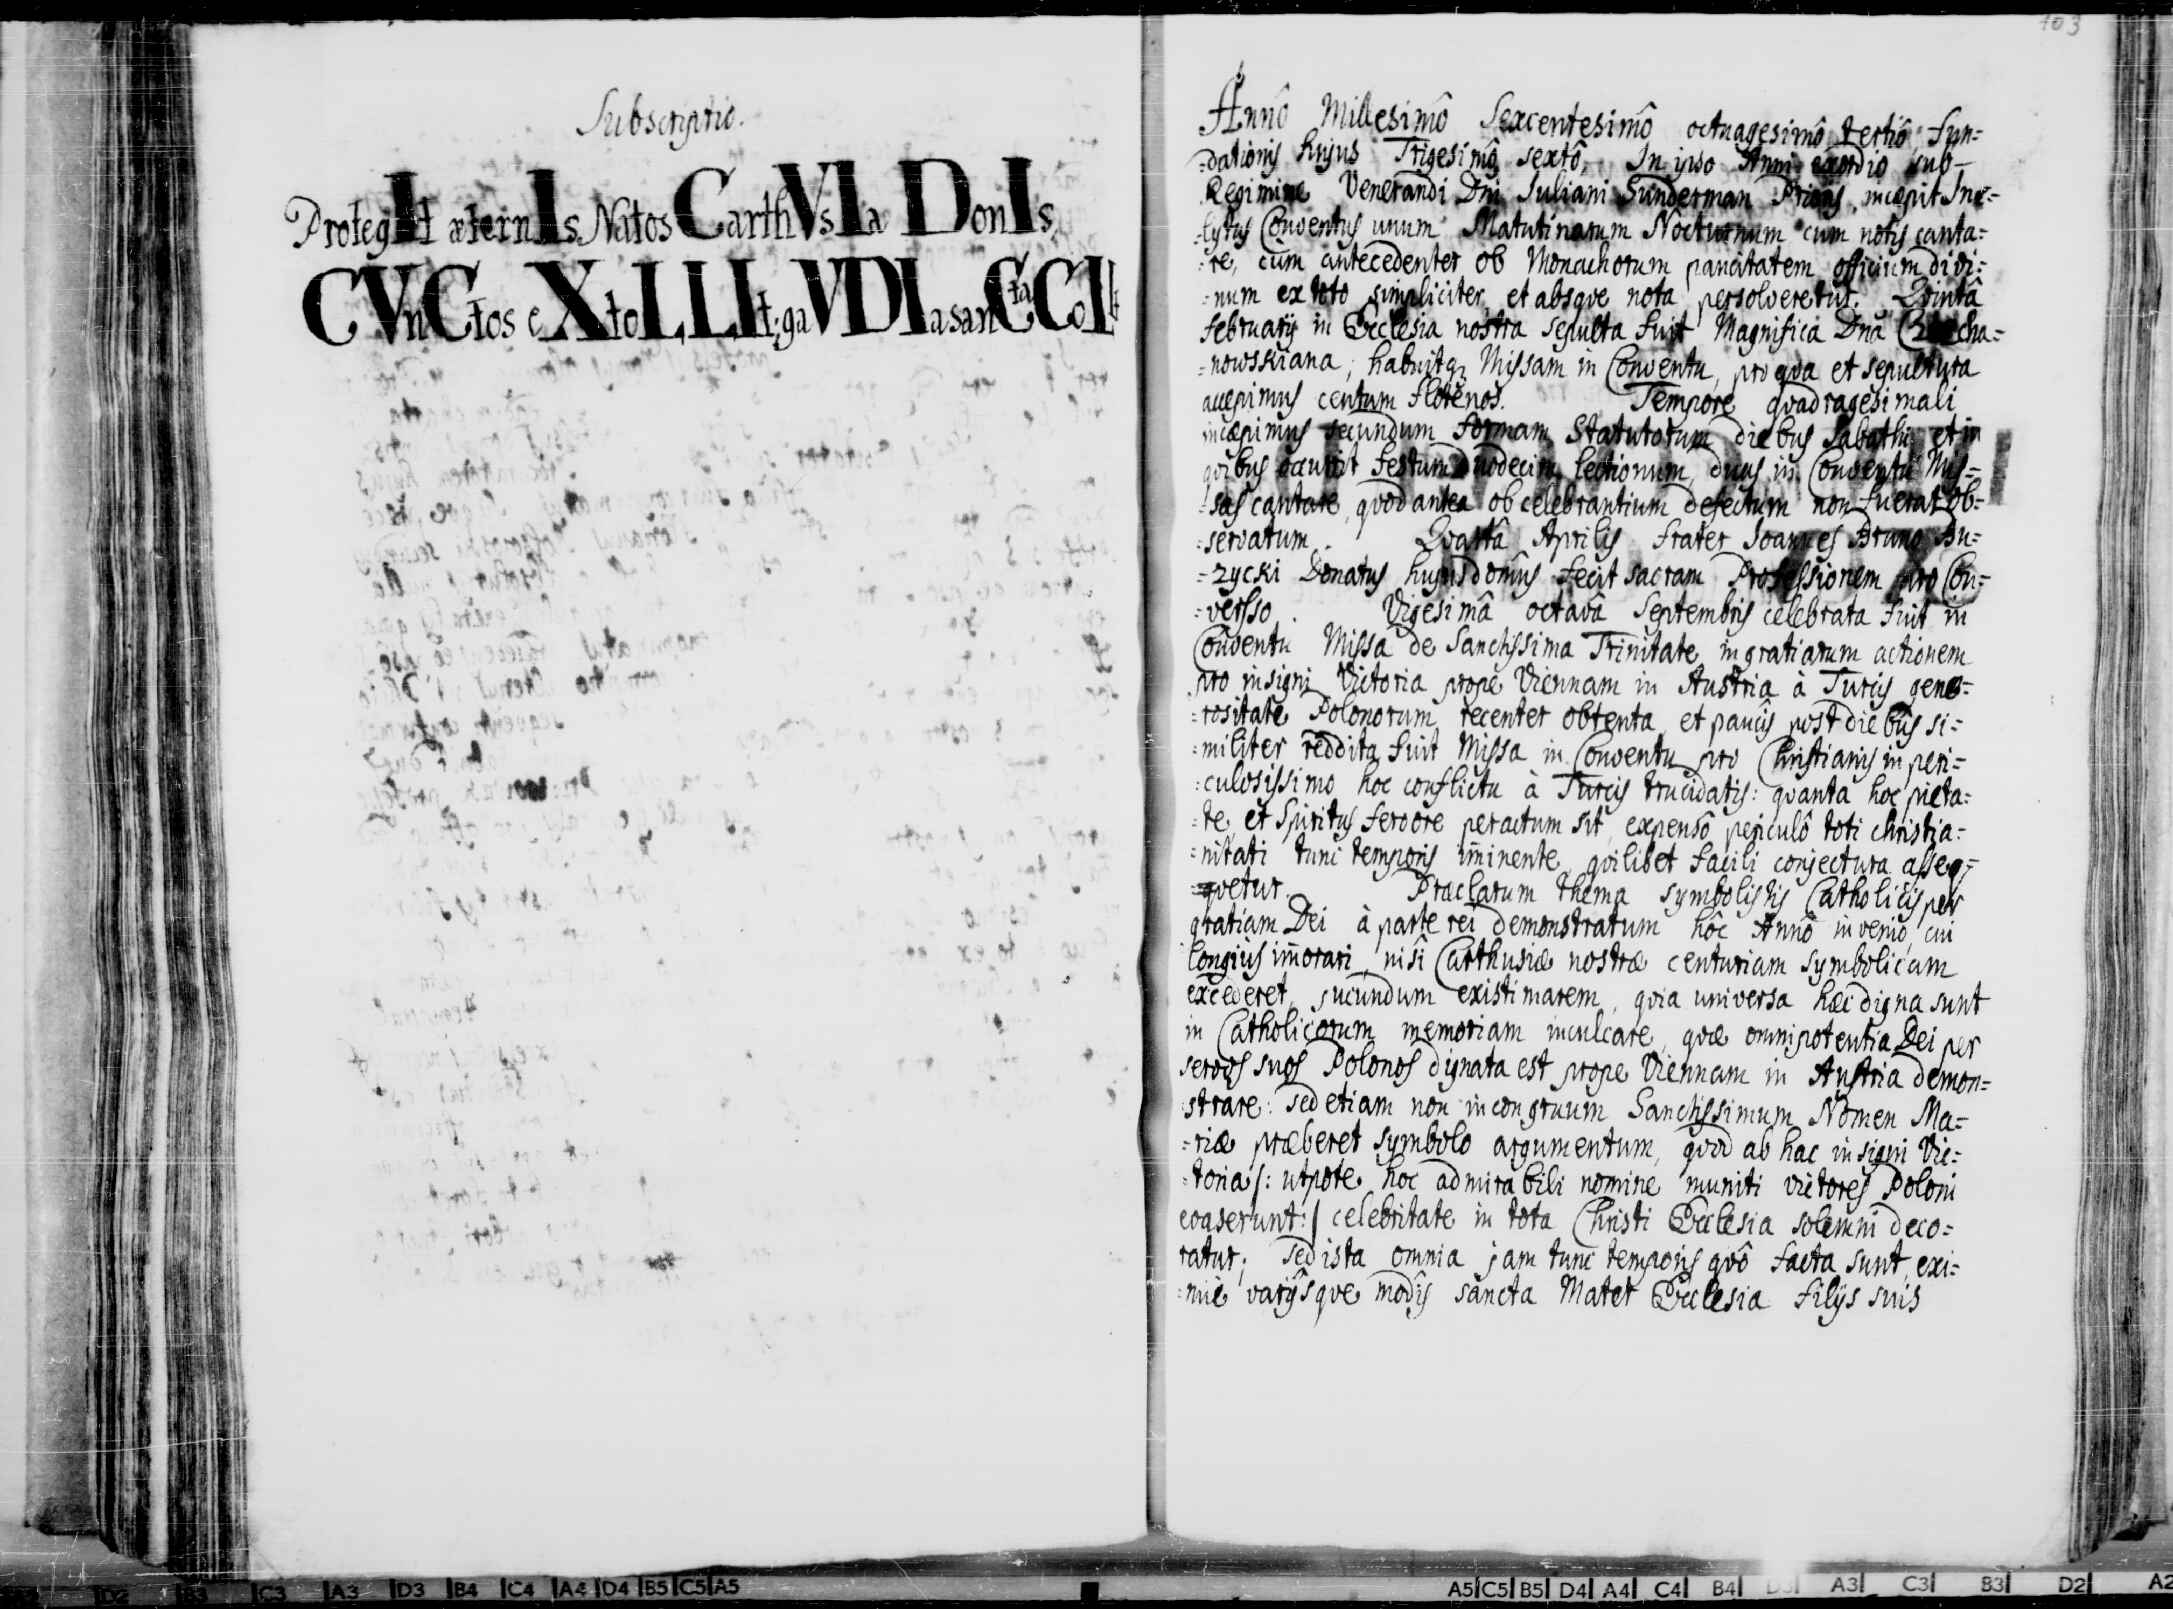 Subscriptio.
ProtegIt æternIs Natos CarthVsIa DonIs,
CVnCtos eXtoLLIt; gaVDIa sanCta CoLIt
103
Annô Millesimô Sexcentesimô octuagesimô tertiô, Fun=
=dationis hujus Trigesimô sextô, In ipso Anni exordio sub
Regimine Venerandi Dni Juliani Sunderman Prioris, incæpit Inc=
=lytus Conventus unum Matutinarum Nocturnum cum notis canta=
=re, cùm antecedenter ob Monachorum paucitatem officium divi=
=num ex toto simpliciter et absqve nota persolveretur. Qvintâ
februarij in Ecclesia nostra sepulta fuit Magnifica Dna
=nowskiana; habuitq; Missam in Conventu, pro qva et sepultura
accepimus centum florenos. Tempore qvadragesimali
incæpimus secundum formam Statutorum diebus Sabathi, et in
qvibus occurrit festum duodecim lectionum, duas in Conventu Mis=
=sas cantare, qvod antea ob celebrantium defectum non fuerat ob=
=servatum. Qvartâ Aprilis frater Joannes Bruno Bu=
=zycki Donatus hujus domûs fecit sacram Professionem pro Con=
=verso. Vigesimâ octavâ Septembris celebrata fuit in
Conventu Missa de Sanctissima Trinitate in gratiarum actionem
pro insigni Victoria propè Viennam in Austria à Turcis gene=
=rositate Polonorum recenter obtenta, et paucîs post diebûs si=
=militer reddita fuit Missa in Conventu pro Christianis in peri=
=culosissimo hoc conflictu à Turcis trucidatis: qvanta hoc pieta=
=te, et Spiritus fervore peractum sit, expensô periculô toti christia=
=nitati tunc temporis iminente, qvilibet facili conjectura asseq=
=vetur. Præclarum thema symbolistis Catholicis per
gratiam Dei à parte rei demonstratum hôc Annô invenio, cui
longiùs imorari, nisi Carthusiæ nostræ centuriam symbolicam
excederet, jucundum existimarem, qvia universa hæc digna sunt
in Catholicorum memoriam inculcare, qvæ omnipotentia Dei per
servos suos Polonos dignata est prope Viennam in Austria demon=
strare: sed etiam non incongruum Sanctissimum Nomen Ma=
=riæ præberet symbolo argumentum, qvod ab hac insigni Vic=
=toria /: utpote hoc admirabili nomine muniti victores Poloni
evaserunt:/ celebritate in tota Christi Ecclesia solemni deco=
ratur; sed ista omnia jam tunc temporis qvô facta sunt, exi=
=miè varijsqve modîs sancta Mater Ecclesia filijs suis